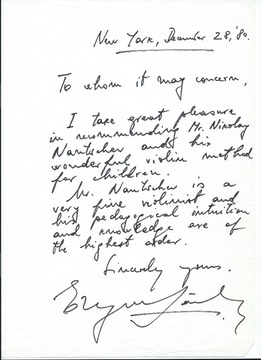 New York, December 28, '80.
To whom it may concern,
I take great pleasure
in recommending Mr. Nikolay
and his
wonderful violin method
for children.
Mr. is a
very fine violinist and
his pedagogical intuition
and knowledge are of
the highest order.
Sincerely yours.